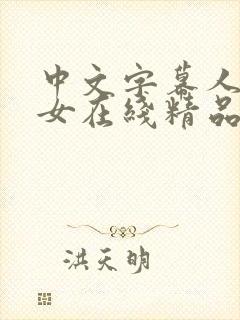 中文字幕人
女在线精品
洪天明